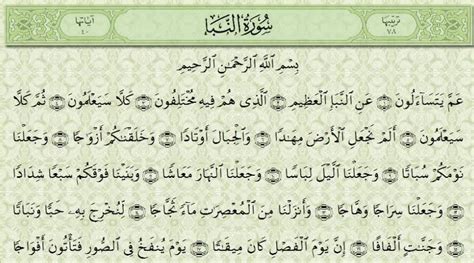 ترتيبها ٧٨ سُورَةُ النَّبَإِ آياتها ٤٠
بِسْمِ ٱللَّهِ ٱلرَّحْمَٰنِ ٱلرَّحِيمِ
عَمَّ يَتَسَآءَلُونَ ١ عَنِ ٱلنَّبَإِ ٱلْعَظِيمِ ٢ ٱلَّذِى هُمْ فِيهِ مُخْتَلِفُونَ ٣ كَلَّا سَيَعْلَمُونَ ٤ ثُمَّ كَلَّا
سَيَعْلَمُونَ ٥ أَلَمْ نَجْعَلِ ٱلْأَرْضَ مِهَٰدًا ٦ وَٱلْجِبَالَ أَوْتَادًا ٧ وَخَلَقْنَٰكُمْ أَزْوَٰجًا ٨ وَجَعَلْنَا
نَوْمَكُمْ سُبَاتًا ٩ وَجَعَلْنَا ٱلَّيْلَ لِبَاسًا ١٠ وَجَعَلْنَا ٱلنَّهَارَ مَعَاشًا ١١ وَبَنَيْنَا فَوْقَكُمْ سَبْعًا شِدَادًا
١٢ وَجَعَلْنَا سِرَاجًا وَهَّاجًا ١٣ وَأَنزَلْنَا مِنَ ٱلْمُعْصِرَٰتِ مَآءً ثَجَّاجًا ١٤ لِّنُخْرِجَ بِهِۦ حَبًّا وَنَبَاتًا
١٥ وَجَنَّٰتٍ أَلْفَافًا ١٦ إِنَّ يَوْمَ ٱلْفَصْلِ كَانَ مِيقَٰتًا ١٧ يَوْمَ يُنفَخُ فِى ٱلصُّورِ فَتَأْتُونَ أَفْوَاجًا